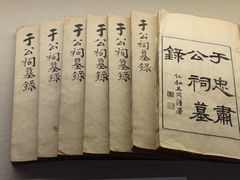 于忠肅
公祠墓
錄
仁和王同謹署
于公祠墓録
于公祠墓録
于公祠墓録
于公祠墓録
于公祠墓録
于公祠墓録